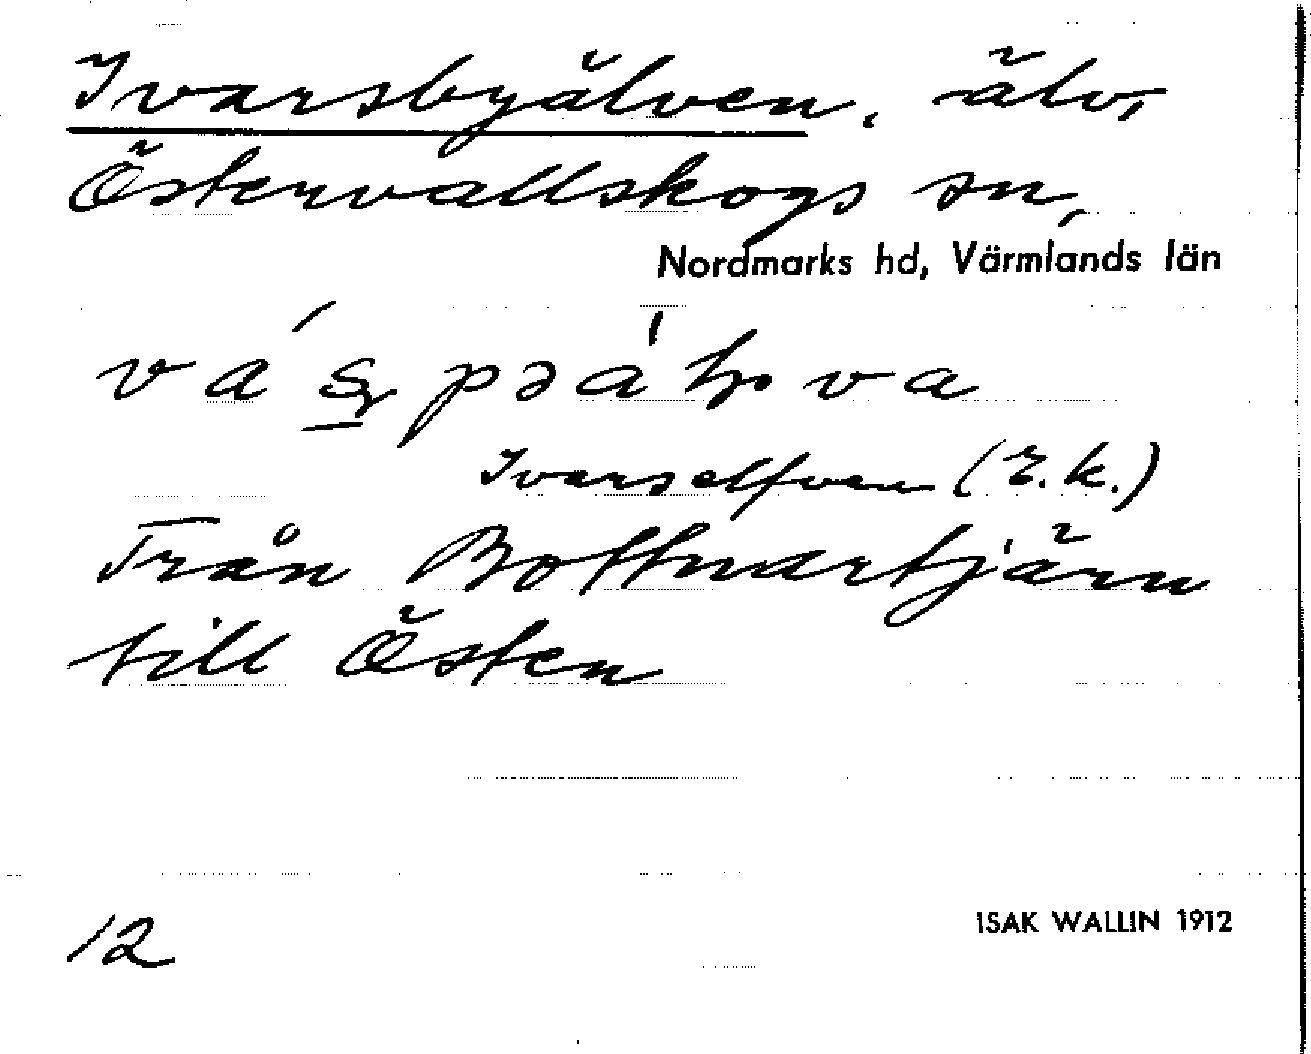 Ivarsbyälven, älv,
Östervallskogs sn,
Nordmarks hd, Värmlands län
Ivarselfven (E.k.)
Från Bottnartjärn
till Östen
12
ISAK WALLIN 1912